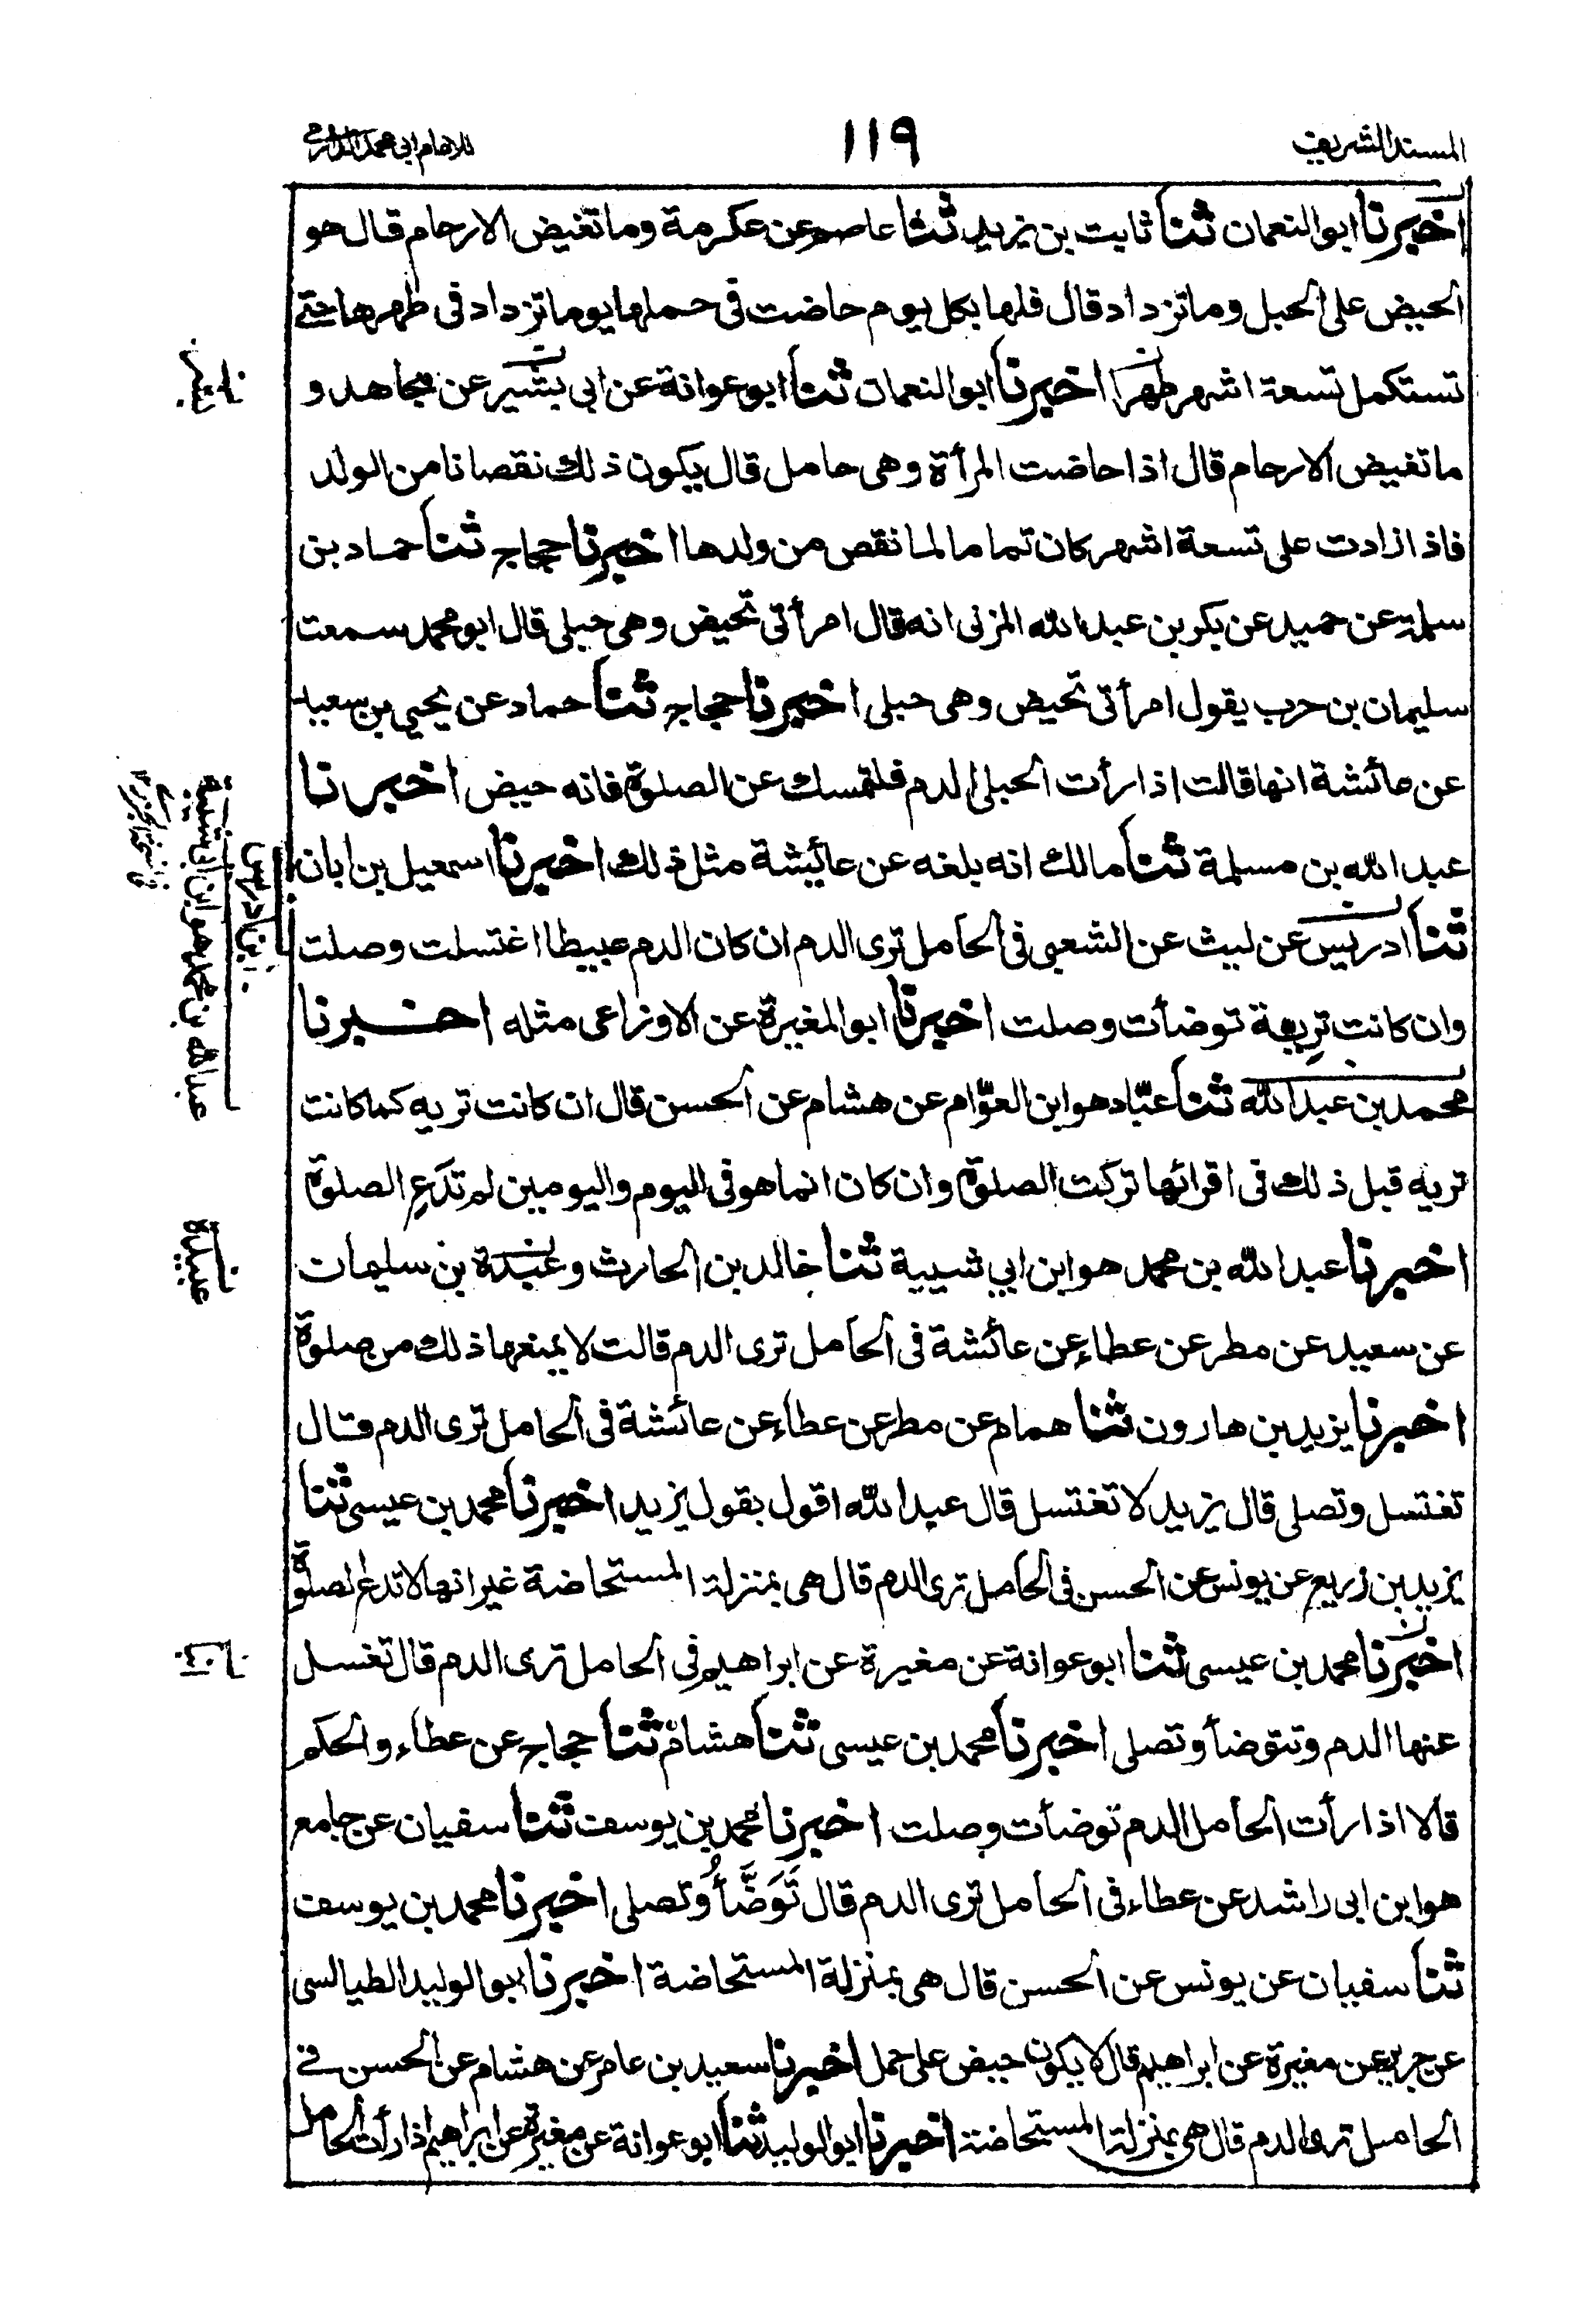 المسند الشريف
١١٩
للامام ابى محمد الدارمى
اخبرنا ابو النعمان ثنا ثابت بن يزيد ثنا عاصم عن عكرمة وما تغيض الارحام قال هو
الحيض على الحبل وما تزداد قال فلها بكل يوم حاضت فى حملها يوما تزداد فى طهرها حتى
تستكمل تسعة اشهر طهرا اخبرنا ابو النعمان ثنا ابو عوانة عن ابى بشير عن مجاهد و
ما تغيض الارحام قال اذا حاضت المرأة وهى حامل قال يكون ذلك نقصانا من الولد
فاذا زادت على تسعة اشهر كان تماما لما نقص من ولدها اخبرنا حجاج ثنا حماد بن
سلمة عن حميد عن بكر بن عبد الله المزنى انه قال امرأتى تحيض وهى حبلى قال ابو محمد سمعت
سليمان بن حرب يقول امرأتى تحيض وهى حبلى اخبرنا حجاج ثنا حماد عن يحيى بن سعيد
عن عائشة انها قالت اذا رأت الحبلى الدم فلتمسك عن الصلوة فانه حيض اخبرنا
عبد الله بن مسلمة ثنا مالك انه بلغه عن عائشة مثل ذلك اخبرنا اسمعيل بن ابان
ثنا ادريس عن ليث عن الشعبى فى الحامل ترى الدم ان كان الدم عبيطا اغتسلت وصلت
وان كانت تريعة توضأت وصلت اخبرنا ابو المغيرة عن الاوزاعى مثله اخبرنا
محمد بن عبد الله ثنا عبّاد هو ابن العوّام عن هشام عن الحسن قال ان كانت تريه كما كانت
تريه قبل ذلك فى اقرائها تركت الصلوة وان كان انما هو فى اليوم واليومين لم تدَعِ الصلوة
اخبرنا عبد الله بن محمد هو ابن ابي شيبة ثنا خالد بن الحارث وعبدة بن سليمان
عن سعيد عن مطر عن عطاء عن عائشة فى الحامل ترى الدم قالت لا يمنعها ذلك من صلوة
اخبرنا يزيد بن هارون ثنا همام عن مطر عن عطاء عن عائشة فى الحامل ترى الدم قال
تغتسل وتصلى قال يزيد لا تغتسل قال عبد الله اقول بقول يزيد اخبرنا محمد بن عيسى ثنا
يزيد بن زريع عن يونس عن الحسن فى الحامل ترى الدم قال هى بمنزلة المستحاضة غير انها لا تدع الصلوة
اخبرنا محمد بن عيسى ثنا ابو عوانة عن مغيرة عن ابراهيم فى الحامل ترى الدم قال تغسل
عنها الدم وتتوضأ وتصلى اخبرنا محمد بن عيسى ثنا هشام ثنا حجاج عن عطاء والحكم
قالا اذا رأت الحامل الدم توضأت وصلت اخبرنا محمد بن يوسف ثنا سفيان عن جامع
هو ابن ابى راشد عن عطاء فى الحامل ترى الدم قال تَوَضَّأُ وتصلى اخبرنا محمد بن يوسف
ثنا سفيان عن يونس عن الحسن قال هى بمنزلة المستحاضة اخبرنا ابو الوليد الطيالسى
عن جرير عن مغيرة عن ابراهيم قال لا يكون حيض على حمل اخبرنا سعيد بن عامر عن هشام عن الحسن فى
الحامل ترى الدم قال هى بمنزلة المستحاضة اخبرنا ابو الوليد ثنا ابو عوانة عن مغيرة عن ابراهيم اذا رأت الحامل
ابن ادريس
عبد الله بن محمد هو ابن ابى شيبة